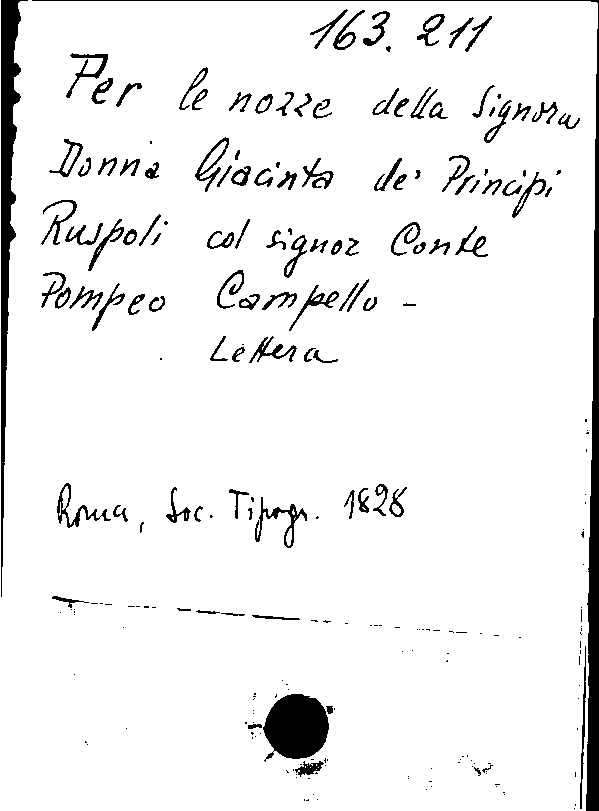 163.211
Per le nozze della Signora
Donna Giacinta de' Principi
Ruspoli col signor Conte
Pompeo Campello -
Lettera
Roma, Soc. Tipogr. 1828